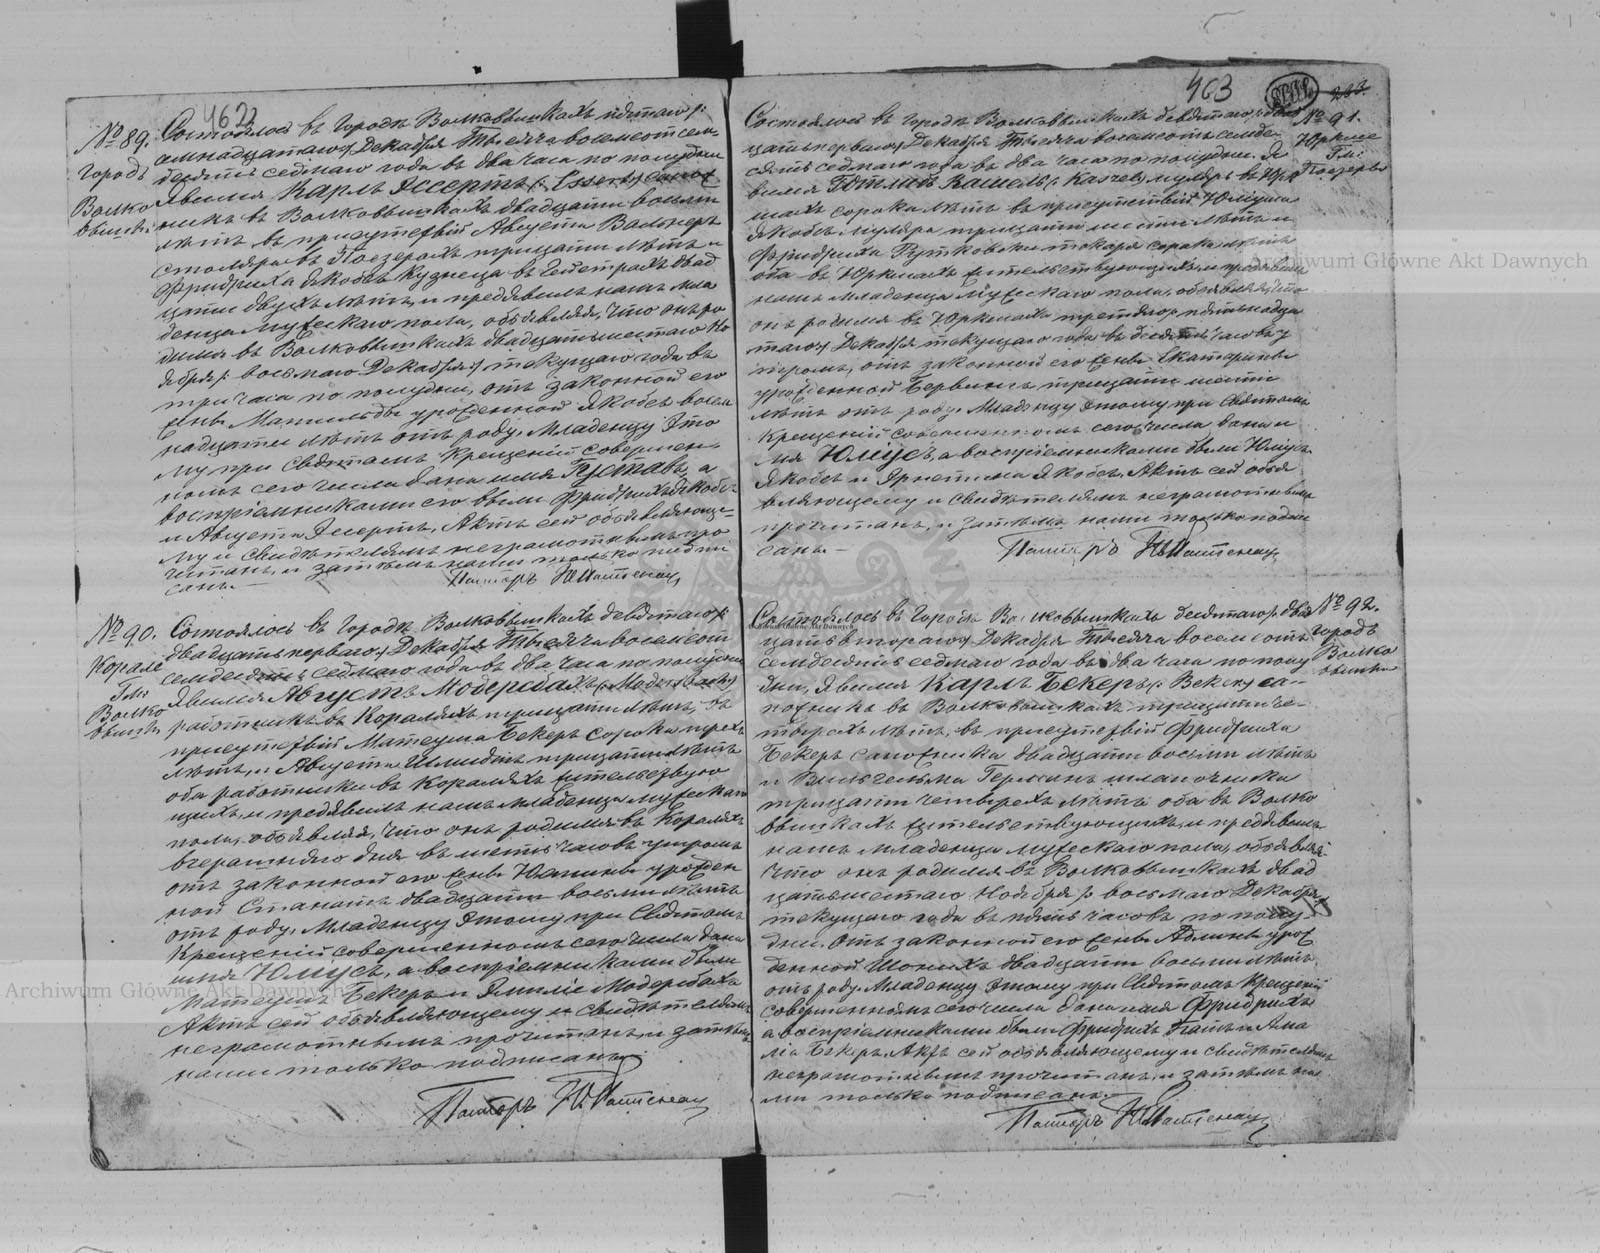 462
№ 89.
Городъ
Волко
вышки.
Состоялось въ Городѣ Волковышкахъ пятаго /:
семнадцатаго:/ Декабря Тысяча восемсотъ сем
десятъ седмаго года въ два часа по полудни
Явился Карлъ Эссертъ (: Essert :)
никъ въ Волковышкахъ двадцати восьми
лѣтъ, въ присутствіи Августа Вальтеръ
столяра въ Поезерахъ тридцати лѣтъ и
Фридриха Якобъ кузнеца въ двад
цати двухъ лѣтъ, и предъявилъ намъ мла
денца мужескаго пола, объявляя, что онъ ро
дился въ Волковышкахъ двадцать шестаго Но
ября /: восьмаго Декабря :/ текущаго года въ
три часа по полудни, отъ законной его
жены Матильды урожденной Якобъ восем
надцати лѣтъ отъ роду. Младенцу это
му при святомъ крещеніи совершен
номъ сего числа дано имя Густавъ, а
воспріемниками его были Фридрихъ Якобъ
и Августа Эсертъ, Актъ сей объявляюще
му и свидѣтелямъ неграмотнымъ про
читанъ, и затѣмъ нами только подпи
санъ.
Пасторъ
№ 90.
Корале
Гм:
Волко
вышки
Состоялось въ Городѣ Волковышкахъ девятаго /:
двадцать перваго:/ Декабря Тысяча восемсотъ
семдесятъ седмаго года въ два часа по полудни
Явился Августъ Модерсбахъ (: Modersbach :)
работникъ въ Кораляхъ тридцати лѣтъ, въ
присутствіи Матеуша Бекеръ сорока трехъ
лѣтъ, и Августа Шмидтъ тридцати лѣтъ
оба работники въ Кораляхъ жительствую
щихъ, и предъявилъ намъ младенца мужескаго
пола, объявляя, что онъ родился въ Кораляхъ
вчерашняго дня въ шесть часовъ утромъ
отъ законной его жены Юлины урожден
ной Станатъ двадцати восьми лѣтъ
отъ роду, Младенцу этому при Святомъ
Крещеніи совершенномъ сего числа дано
имя Юліусъ, а воспріемниками были
Матеушъ Бекеръ и Эмилія Модерсбахъ
Актъ сей объявляющему и свидѣтелямъ
неграмотнымъ прочитанъ, и затѣмъ
нами только подписанъ.
Пасторъ
463
233
№ 91.
Юркше
Гм:
Поезеры
Состоялось въ Городѣ Волковышкахъ девятаго /: двад
цать перваго:/ Декабря Тысяча восемсотъ семде
сятъ седмаго года въ два часа по полудни. Я
вился Готлибъ Кашель мулеръ въ Юрк
шахъ сорока лѣтъ въ присутствіи Юліуша
Якобъ муляра тридцати шести лѣтъ и
Фридриха Рутковски токара сорока лѣтъ
оба въ Юркшахъ жительствующихъ и предъявилъ
намъ младенца мужескаго пола, объявляя, что
онъ родился въ Юркшахъ третьяго /: пятнадца
таго:/ Декабря текущаго года въ десять часовъ у
тромъ, отъ законной его жены Екатерины
урожденной Бервингъ тридцати шести
лѣтъ отъ роду. Младенцу этому при Святомъ
Крещеніи совершенномъ сего числа дано и
мя Юліусъ, а воспріемниками были Юліусъ
Якобъ и Эрнестина Якобъ, Актъ сей объя
вляющему и свидѣтелямъ неграмотнымъ
прочитанъ, и затѣмъ нами только подпи
санъ. —
Пасторъ
№ 92.
Городъ
Волко
вышки
Состоялось въ Городѣ Волковышкахъ десятаго /: двад
цать втораго:/ Декабря Тысяча восемсотъ
семдесятъ седмаго года въ два часа по полу
дни, Явился Карлъ Бекеръ (: Beker :) са
пожникъ въ Волковышкахъ тридцати че
тырехъ лѣтъ, въ присутствіи Фридриха
Бекеръ сапожника двадцати восьми лѣтъ
и Вильгельма Германъ шапочника
тридцати четырехъ лѣтъ оба въ Волко
вышкахъ жительствующихъ, и предъявилъ
намъ младенца мужескаго пола, объявляя
что онъ родился въ Волковышкахъ двад
цать шестаго Ноября /: восьмаго Декабря :/
текущаго года въ пять часовъ по полу
дни. отъ законной его жены Адлины урож
денной Шонихъ двадцати восьми лѣтъ
отъ роду, Младенцу этому при Святомъ Крещеніи
совершенномъ сего числа дано имя Фридрихъ
а воспріемниками были Фридрихъ и Ама
лія Бекеръ, Актъ сей объявляющему и свидѣтелямъ
неграмотнымъ прочитанъ, и затѣмъ на
ми только подписанъ.
Пасторъ
Archiwum Główne Akt Dawnych
Archiwum Główne Akt Dawnych
Archiwum Główne Akt Dawnych